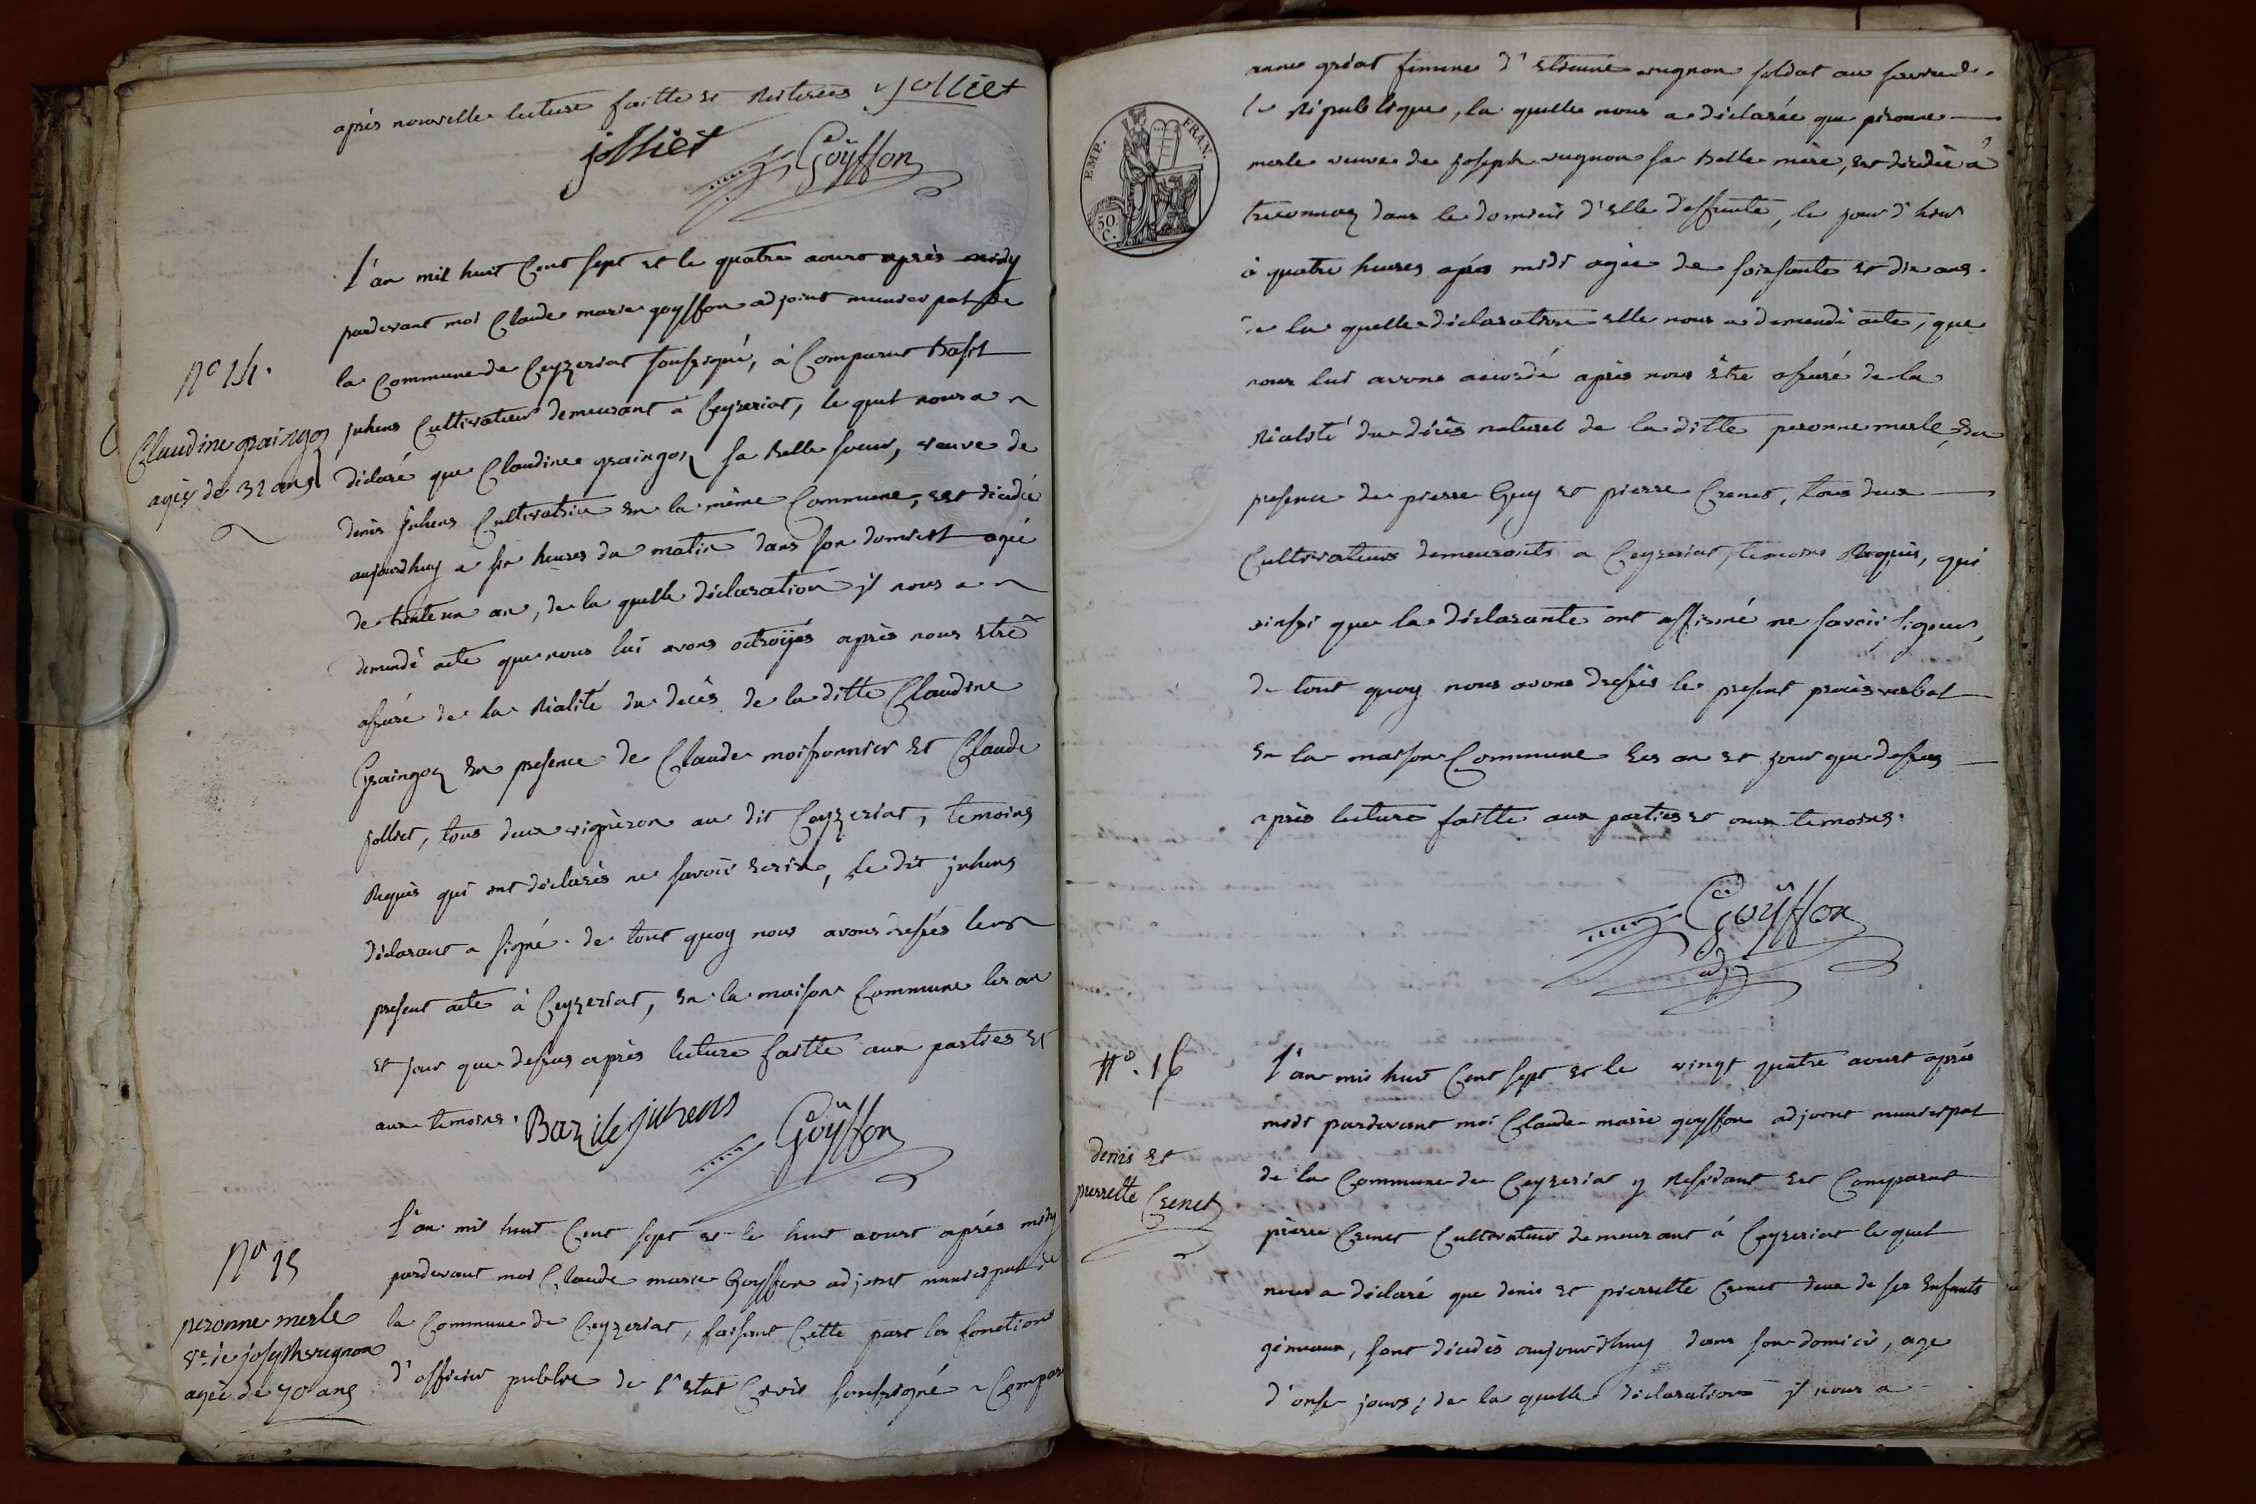 après nouvelle lecture faitte et Reiterées jolliet
jolliet Goÿffon
l'an mil huit Cent sept et le quatre aoust après midy
pardevant moi Claude marie goyffon adjoint municipal de
la Commune de Ceyzeriat soussigné, à Comparut Basil
N° 14.
juhens Cultivateur demeurant a Ceyzeriat, le quel nous a
Claudine graingoz
agée de 31 ans
déclaré que Claudine graingoz sa Belle soeur, veuve de
denis juhens Cultivatrice en la même Commune, est décédée
aujourdhuy a six heures du matin dans son domicil agée
de trente un an, de la quelle déclaration il nous a
demendé acte que nous lui avons octroÿés après nous etre
assuré de la Réalité du decès de la ditte Claudine
Graingoz En presence de Claude moissonnier et Claude
jolliet, tous deux vigneron au dit Ceyzeriat, temoins
Requis qui ont déclarés ne savoir ecrire, le dit juhens
déclarant a signé. de tout quoy nous avons dressés le
present acte à Ceyzeriat, En la maison Commune les an
et jour que dessus après lecture faitte aux parties et
aux temoins. Bazile juhens Goÿffon
l'an mil huit Cent sept et le huit aoust après midy
N° 15
pardevant moi Claude marie Goyffon adjoint municipal de
peronne merle
ve de joseph vugnon
agée de 70 ans
la Commune de Ceyzeriat, faisant Cette part les fonctions
d'officier public de l'Etat Civil soussigné a Comparu
EMP. FRAN.
50. C.
anne gréat femme d'etienne vugnon soldat au service de
la République, la quelle nous a déclarée que peronne
merle veuve de joseph vugnon sa Belle mère, est décédée à
treconnaz dans le domicil d'elle deffunte, le jour d'hier
à quatre heures après midi agée de soissante et dix ans.
de la quelle déclaration elle nous a demendé acte, que
nous lui avons accordé après nous être assuré de la
Réalité du décès naturel de la ditte peronne merle, En
presence de pierre Guy et pierre Crenet, tous deux
Cultivateurs demeurants a Ceyzeriat, temoins Requis, qui
ainssi que la déclarante ont affirmé ne savoir signer,
de tout quoy nous avons dressés le present procès verbal
En la maison Commune les an et jour que dessus
après lecture faitte aux parties et aux temoins.
Goÿffon
adj
N°. 16
l'an mil huit Cent sept et le vingt quatre aoust après
midi pardevant moi Claude marie goyffon adjoint municipal
denis et
pierrette Crenet
de la Commune de Ceyzeriat y Residant est Comparut
pierre Crenet Cultivateur demeurant á Ceyzeriat le quel
nous a déclaré que denis et pierrette Crenet deux de ses Enfants
gémeaux, sont décédés aujourdhuy dans son domicil, age
d'onse jours; de la quelle déclaration il nous a